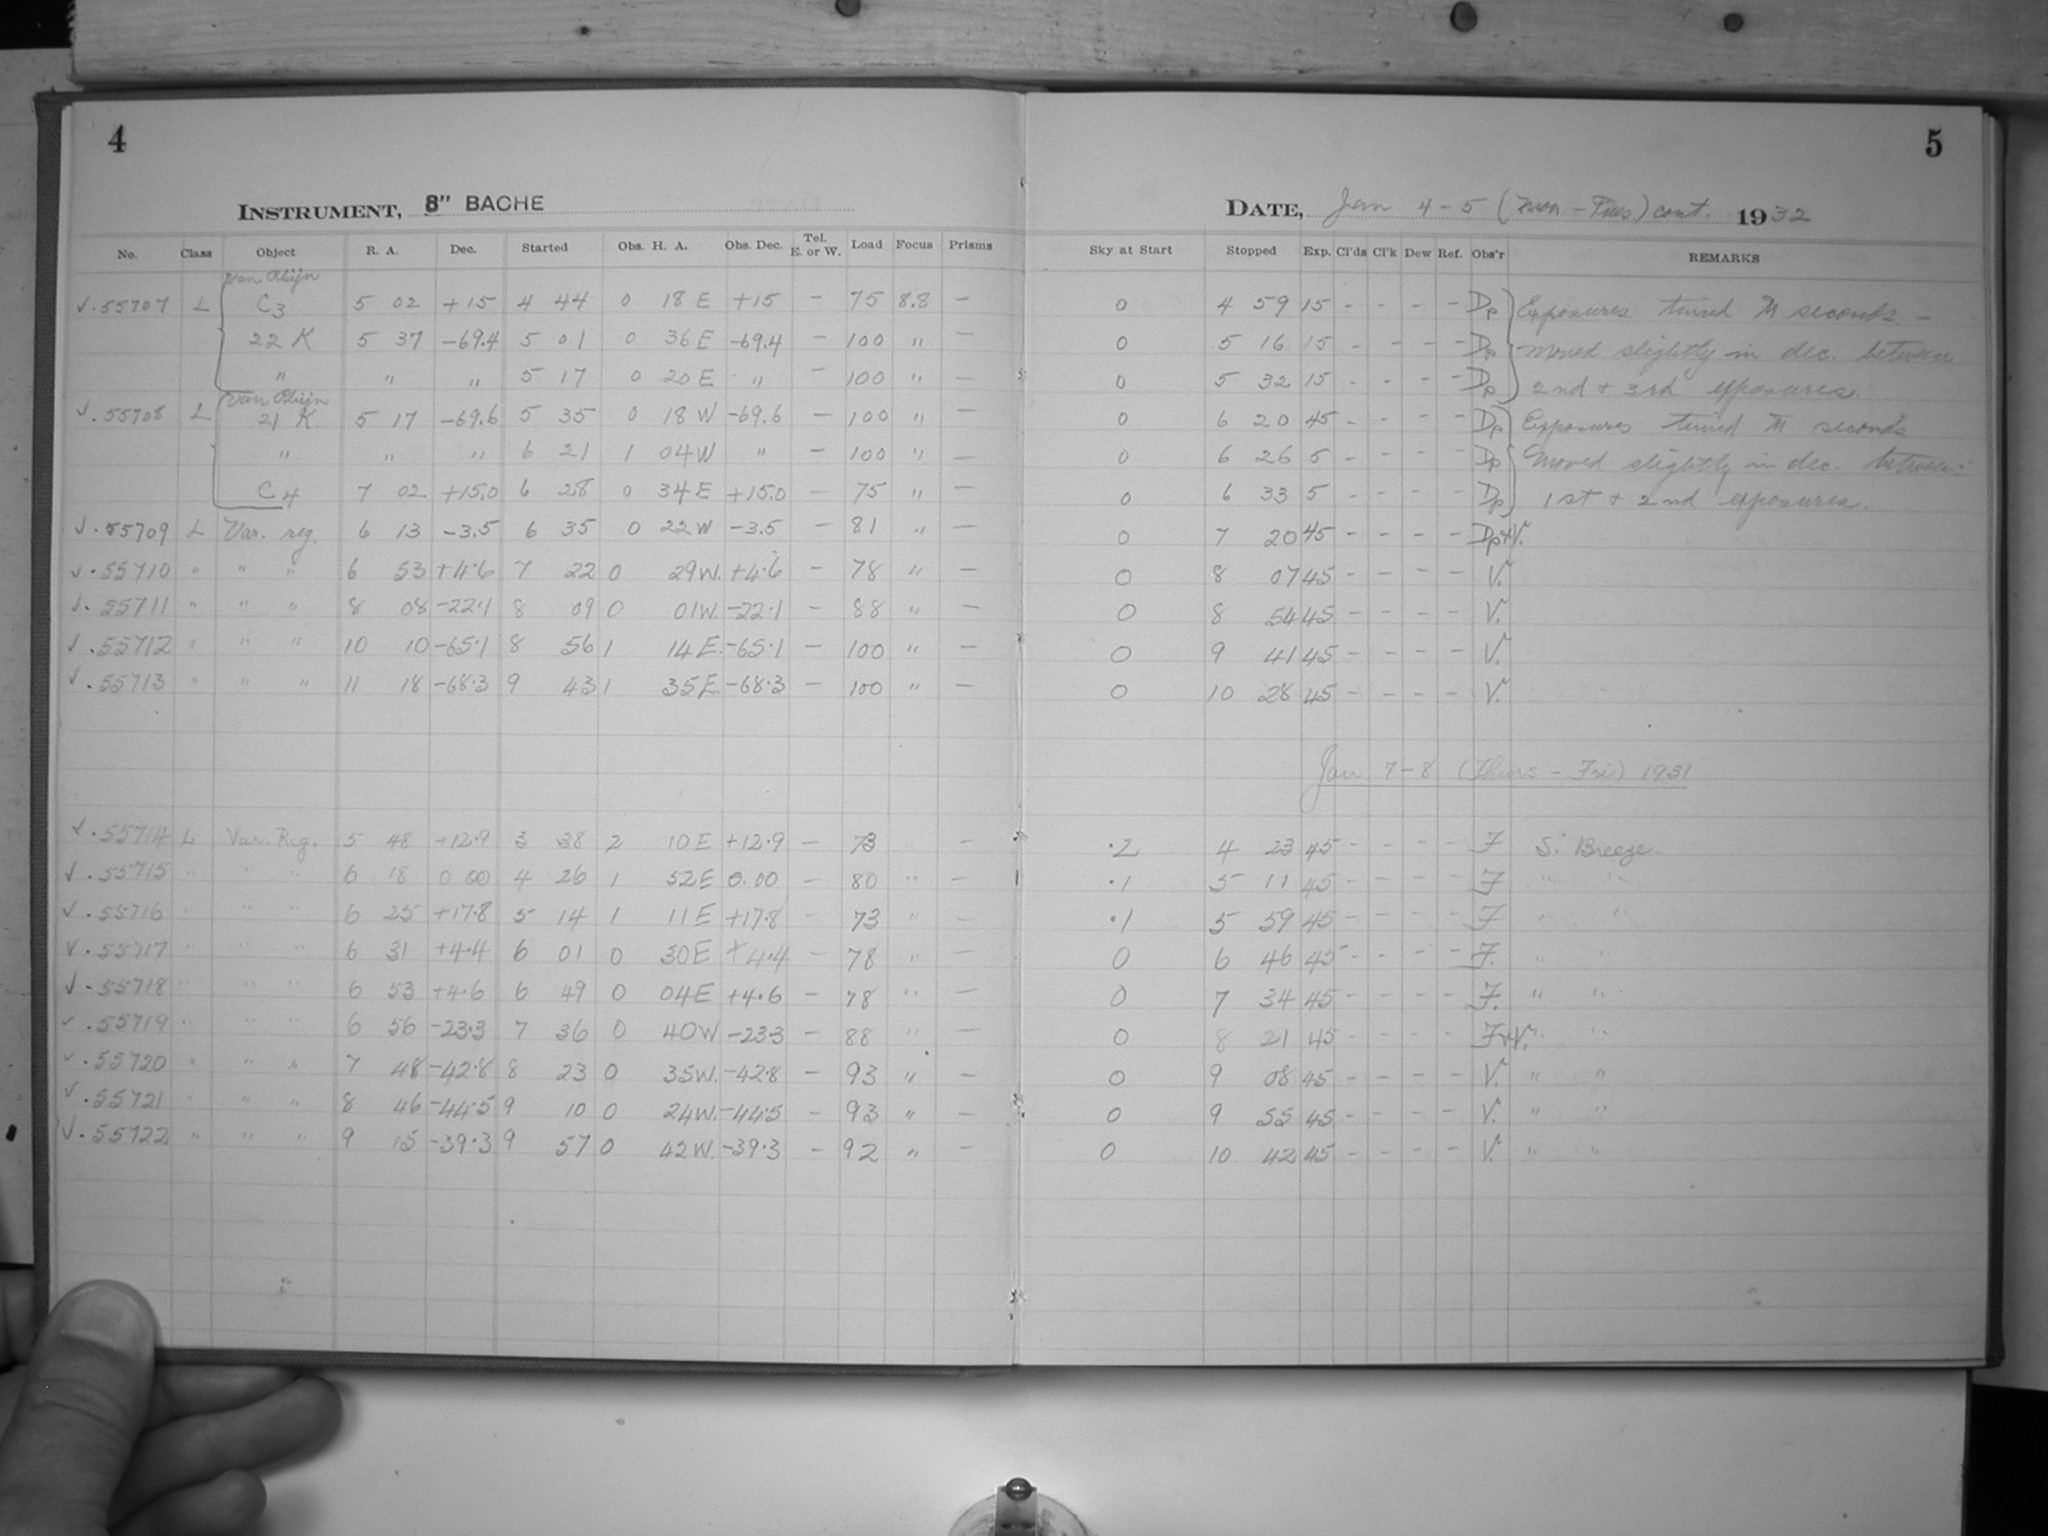 4
INSTRUMENT, 8" BACHE
No. Class Object R. A. Dec. Started Obs. H. A. Obs. Dec. Tel. E. or W. Load Focus Prisms
Van Rhijn
√.55707 L C3 5 02 +15 4 44 0 18 E +15 - 75 8.8 -
22 K 5 37 -69.4 5 01 0 36 E -69.4 - 100 " -
" " " 5 17 0 20 E " - 100 " -
Van Rhijn
√.55708 L 21 K. 5 17 -69.6 5 35 0 18 W -69.6 - 100 " -
" " " 6 21 1 04 W " - 100 " -
C4 7 02 +15.0 6 28 0 34 E +15.0 - 75 " -
√.55709 L Var. reg. 6 13 -3.5 6 35 0 22 W -3.5 - 81 " -
√.55710 " " " 6 53 +4.6 7 22 0 29 W. +4.6 - 78 " -
√.55711 " " " 8 08 -22.1 8 09 0 01 W. -22.1 - 88 " -
√.55712 " " " 10 10 -65.1 8 56 1 14 E. -65.1 - 100 " -
√.55713 " " " 11 18 -68.3 9 43 1 35 E. -68.3 - 100 " -
√.55714 L Var. Reg. 5 48 +12.9 3 38 2 10 E +12.9 - 73 " -
√.55715 " " " 6 18 0.00 4 26 1 52 E 0.00 - 80 " -
√.55716 " " " 6 25 +17.8 5 14 1 11 E +17.8 - 73 " -
√.55717 " " " 6 31 +4.4 6 01 0 30 E +4.4 - 78 " -
√.55718 " " " 6 53 +4.6 6 49 0 04 E +4.6 - 78 " -
√.55719 " " " 6 56 -23.3 7 36 0 40 W -23.3 - 88 " -
√.55720 " " " 7 48 -42.8 8 23 0 35 W. -42.8 - 93 " -
√.55721 " " " 8 46 -44.5 9 10 0 24 W. -44.5 - 93 " -
√.55722 " " " 9 15 -39.3 9 57 0 42 W. -39.3 - 92 " -
5
DATE, Jan 4-5 (Mon - Tues) cont. 1932
Sky at Start Stopped Exp. Cl'ds Cl'k Dew Ref. Obs'r REMARKS
0 4 59 15 - - - - Dp Exposures timed seconds. -
0 5 16 15 - - - - Dp Moved slightly in dec. between
0 5 32 15 - - - - Dp 2nd + 3rd exposures.
0 6 20 45 - - - - Dp Exposures timed seconds
0 6 26 5 - - - - Dp Moved slightly in dec. between
0 6 33 5 - - - - Dp 1st + 2nd exposures.
0 7 20 45 - - - - Dp+V.
0 8 07 45 - - - - V.
0 8 54 45 - - - - V.
0 9 41 45 - - - - V.
0 10 28 45 - - - - V.
Jan 7-8 (Thurs - Fri) 1931
.2 4 23 45 - - - - F S. Breeze.
.1 5 11 45 - - - - F " "
.1 5 59 45 - - - - F " "
0 6 46 45 - - - - F. " "
0 7 34 45 - - - - F. " "
0 8 21 45 - - - - F+V. " "
0 9 08 45 - - - - V. " "
0 9 55 45 - - - - V. " "
0 10 42 45 - - - - V. " "